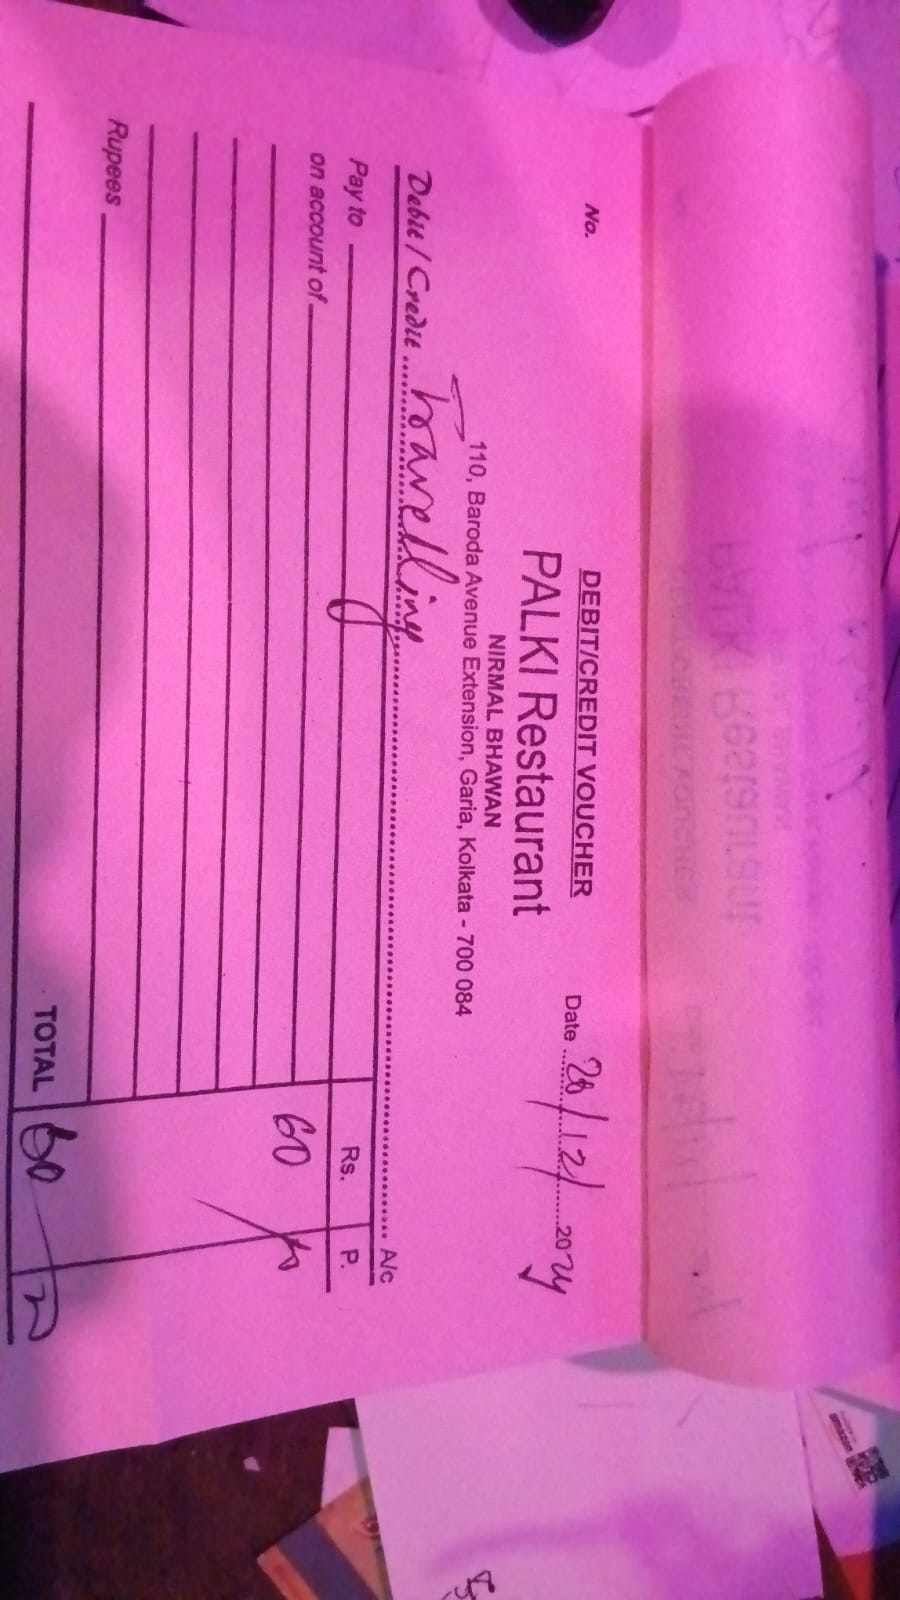 DEBIT/CREDIT VOUCHER
No.
Date 28/12/2024
PALKI Restaurant
NIRMAL BHAWAN
110, Baroda Avenue Extension, Garia, Kolkata - 700 084
Debit / Credit Travelling A/c
Pay to
Rs. P.
on account of
60
Rupees
TOTAL 60
PALKI Restaurant
amazon